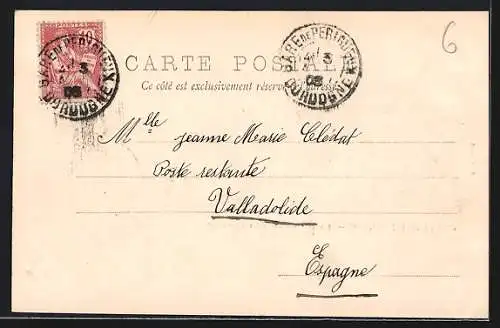 10
POSTES
GARE DE PÉRIGUEUX
3
03
DORDOGNE
GARE DE PÉRIGUEUX
3
03
DORDOGNE
6
CARTE POSTALE
Ce côté est exclusivement réservé
Mlle Jeanne Marie Clédat
Poste restante
Valladolide
Espagne